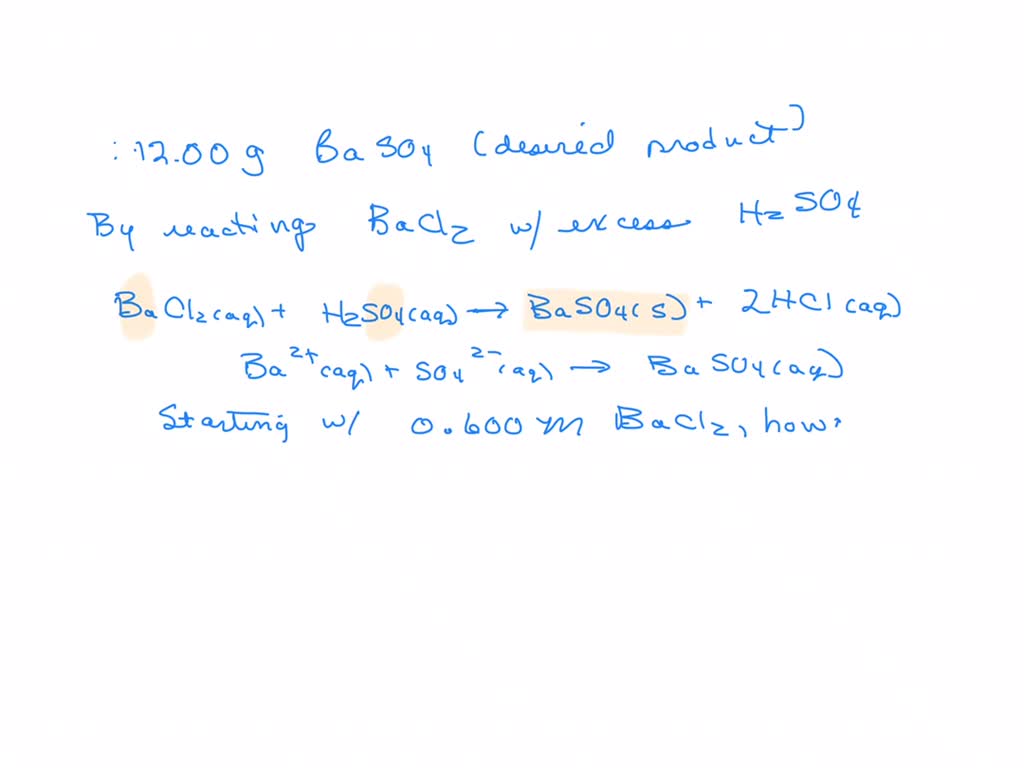 : 12.00 g BaSO4 (desired product)
By reacting BaCl2 w/ excess H2SO4
BaCl2(aq) + H2SO4(aq) → BaSO4(s) + 2HCl(aq)
Ba2+(aq) + SO4 2-(aq) → BaSO4(aq)
Starting w/ 0.600 M BaCl2, how